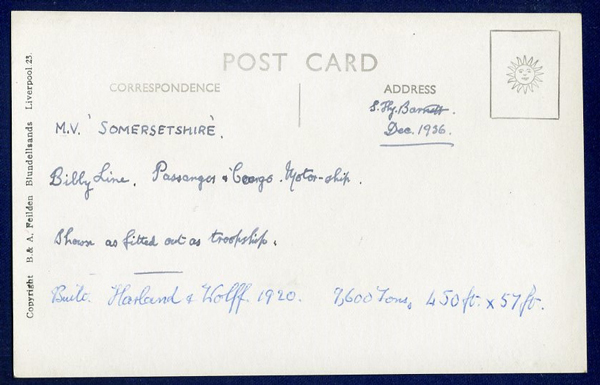 POST CARD
CORRESPONDENCE
ADDRESS
S. Hy. Barnett.
Dec. 1936.
M.V. 'SOMERSETSHIRE'.
Bibby Line. Passenger & Cargo Motor-ship.
Shown as fitted out as troopship.
Built. Harland & Wolff. 1920. 9,600 Tons, 450 ft. x 57 ft.
Copyright B. & A. Feilden Blundellsands Liverpool 23.